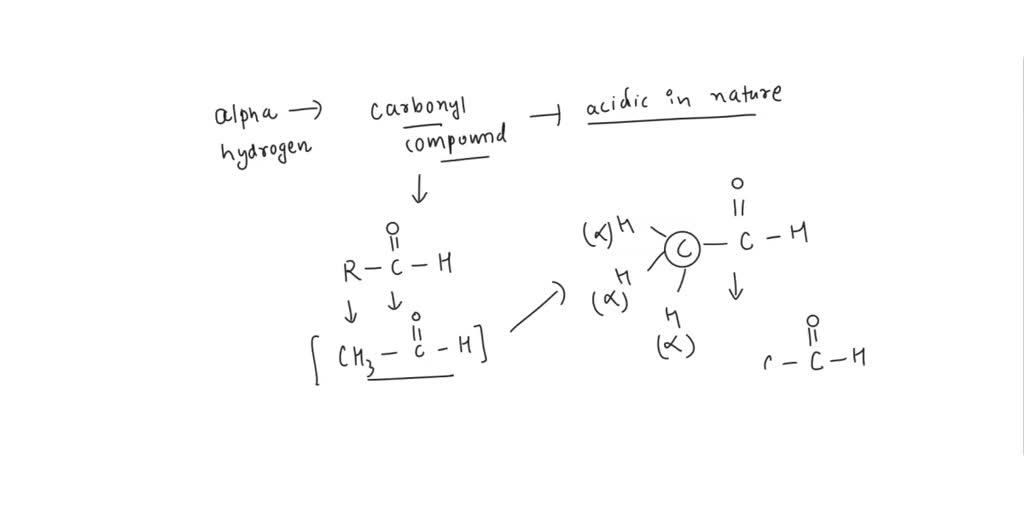 alpha → carbonyl ⊣ acidic in nature
hydrogen compound
↓
O
||
R — C — H
↓ ↓
O
||
[ CH₃ — C — H ]
O
||
(α) H C — C — H
H
(α)
H
(α)
↓
O
||
— C — H